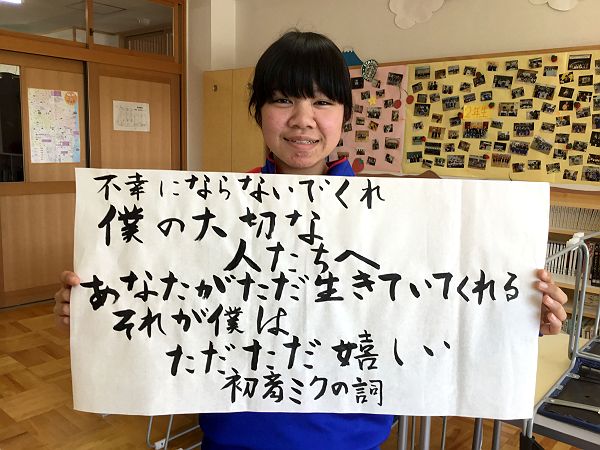 不幸にならないでくれ
僕の大切な
人たちへ
あなたがただ生きていてくれる
それが僕は
ただただ嬉しい
初音ミクの詞